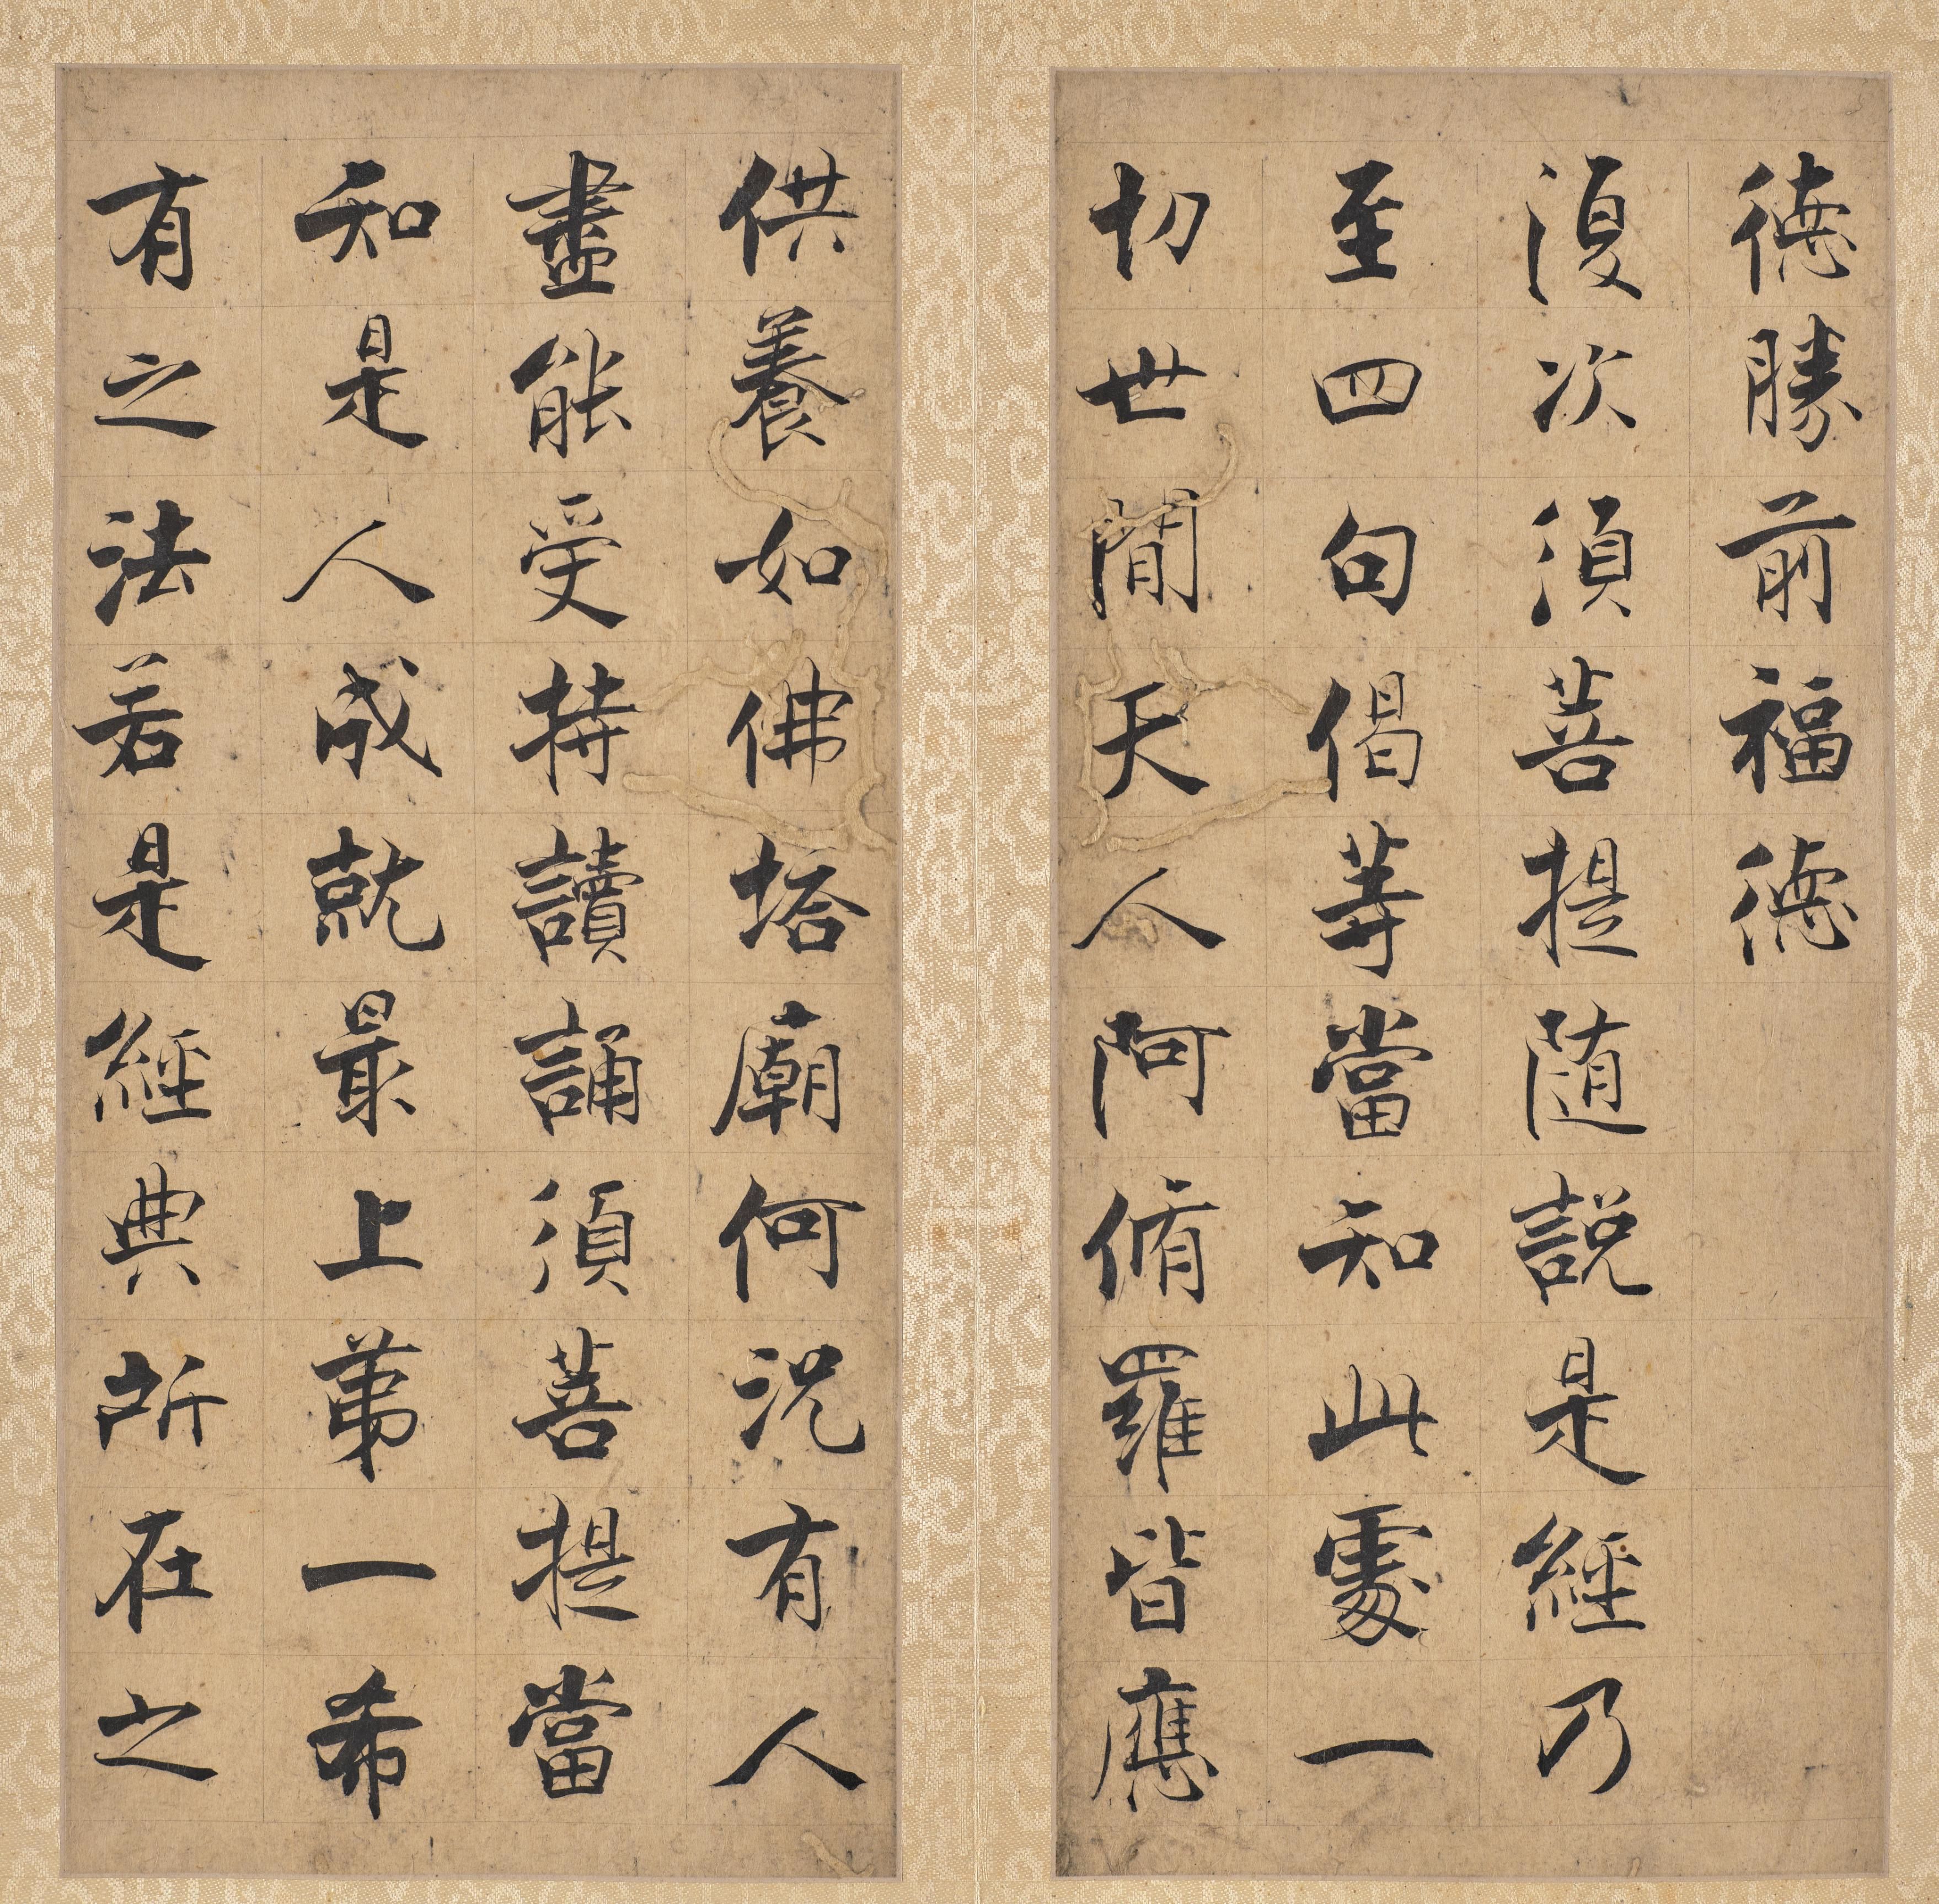 德勝前福德
復次須菩提隨說是經乃
至四句偈等當知此處一
切世間天人阿脩羅皆應
供養如佛塔廟何況有人
盡能受持讀誦須菩提當
知是人成就最上第一希
有之法若是經典所在之